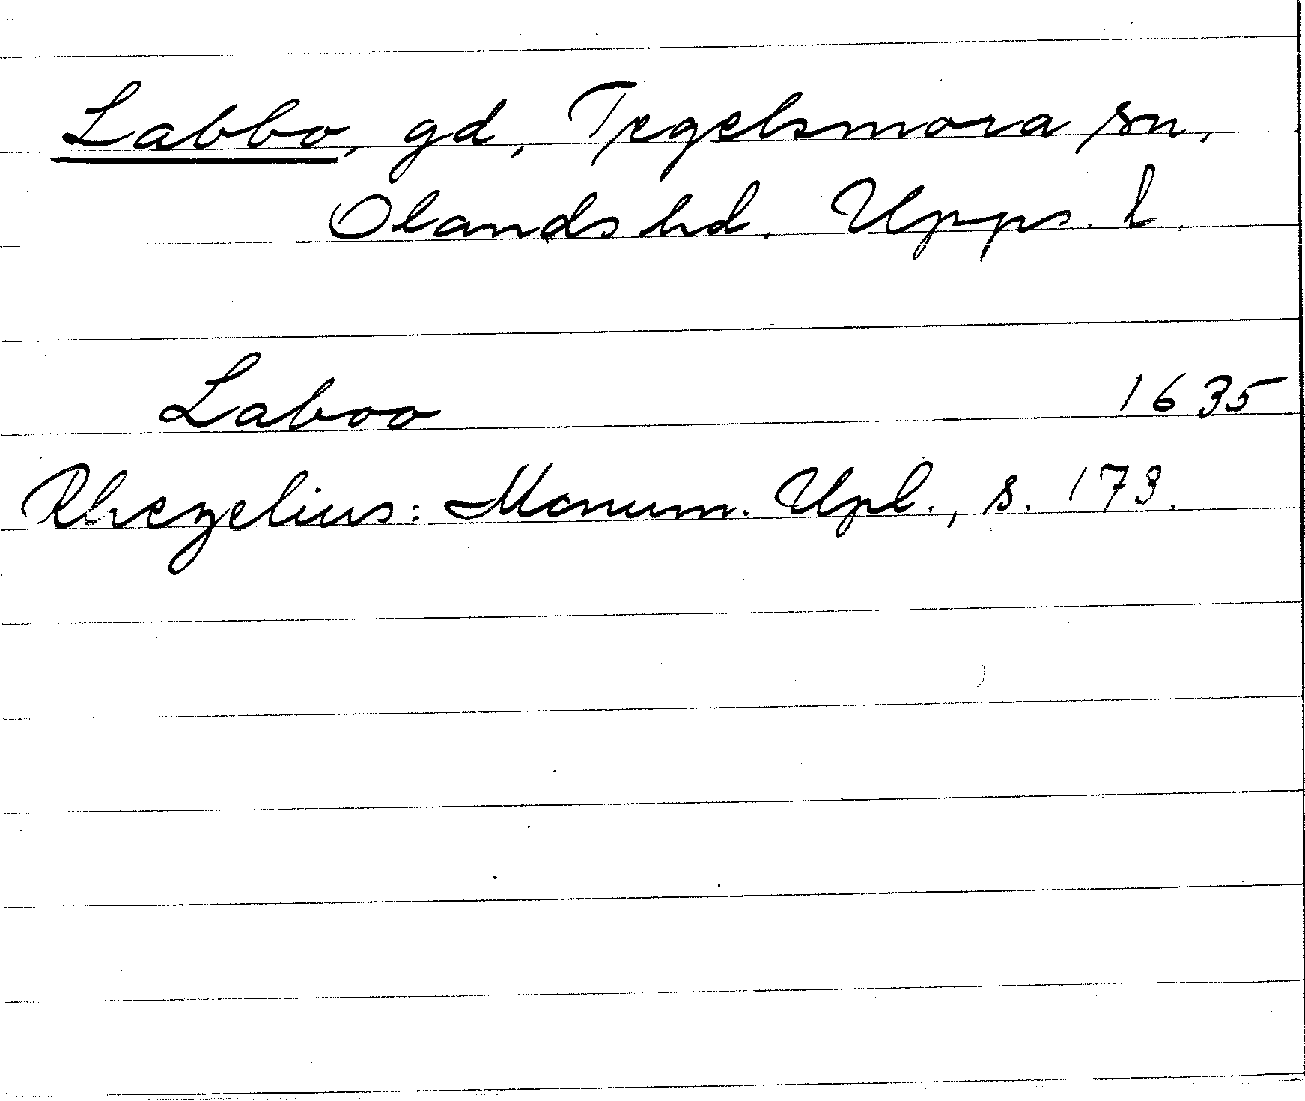 Labbo, gd, Tegelsmora sn,
Olands hd. Upps. l.
Laboo 1635
Rhezelius: Monum. Upl., s. 173.